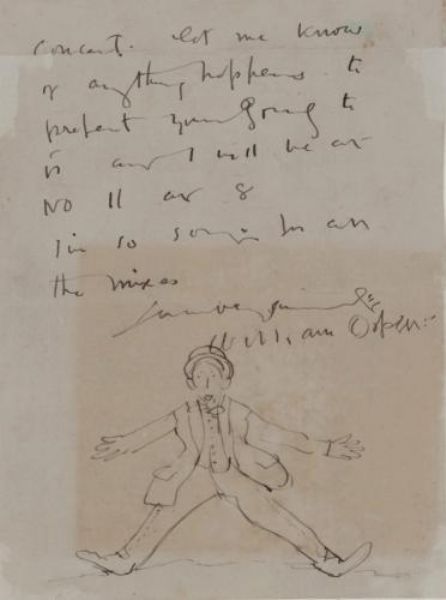 concert. let me know
if anything happens to
prefent your going to
it and I will be at
No 11 at 8
I'm so sorry for all
the mixes
William Orpen